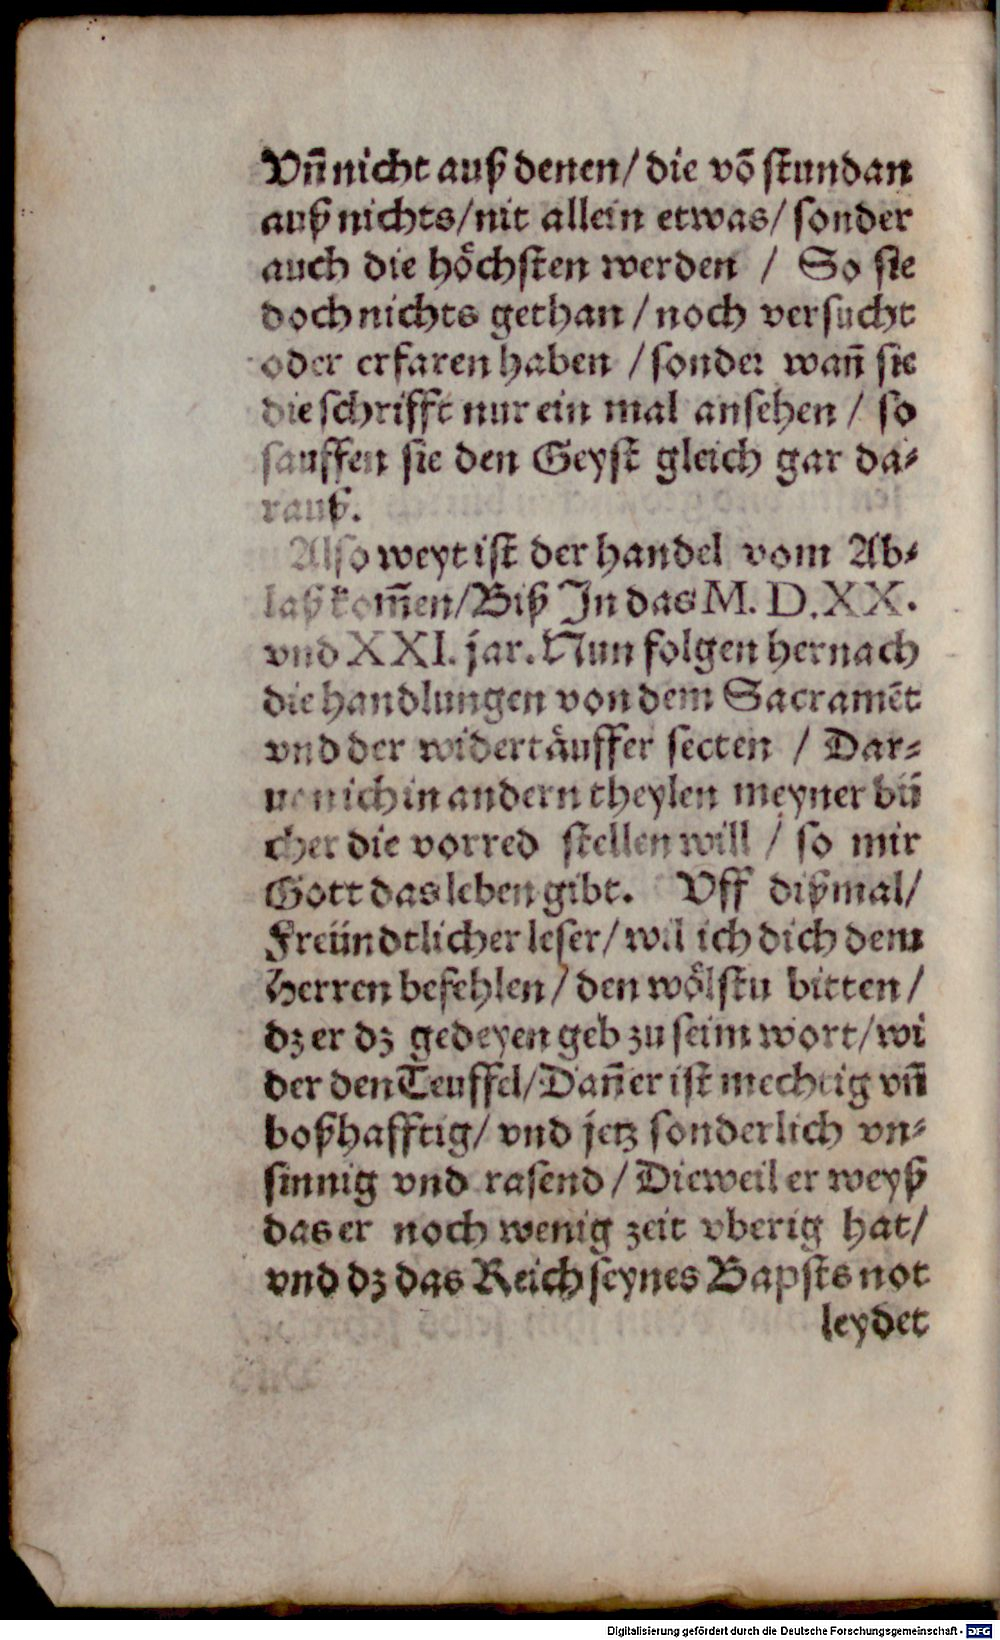 Vnñ nicht auß denen/ die võ stundan
auß nichts/ nit allein etwas/ sonder
auch die hoͤchsten werden / So sie
doch nichts gethan / noch versucht
oder erfaren haben / sonder wañ sie
die schrifft nur ein mal ansehen / so
sauffen sie den Geyst gleich gar da⸗
rauß.
Also weyt ist der handel vom Ab⸗
laß kom̃en/ Biß Jn das M. D. XX.
vnd XXI. jar. Nun folgen hernach
die handlungen von dem Sacramẽt
vnd der widertaͤuffer secten / Dar⸗
uon ich in andern theylen meyner bü
cher die vorred stellen will / so mir
Gott das leben gibt. Vff dißmal/
Freündtlicher leser/ wil ich dich dem
Herren befehlen/ den woͤlstu bitten/
dz er dz gedeyen geb zu seim wort/ wi
der den Teuffel/ Dañ er ist mechtig vñ
boßhafftig/ vnd jetz sonderlich vn⸗
sinnig vnd rasend/ Dieweil er weyß
das er noch wenig zeit vberig hat/
vnd dz das Reich seynes Bapsts not
leydet
Digitalisierung gefördert durch die Deutsche Forschungsgemeinschaft - DFG